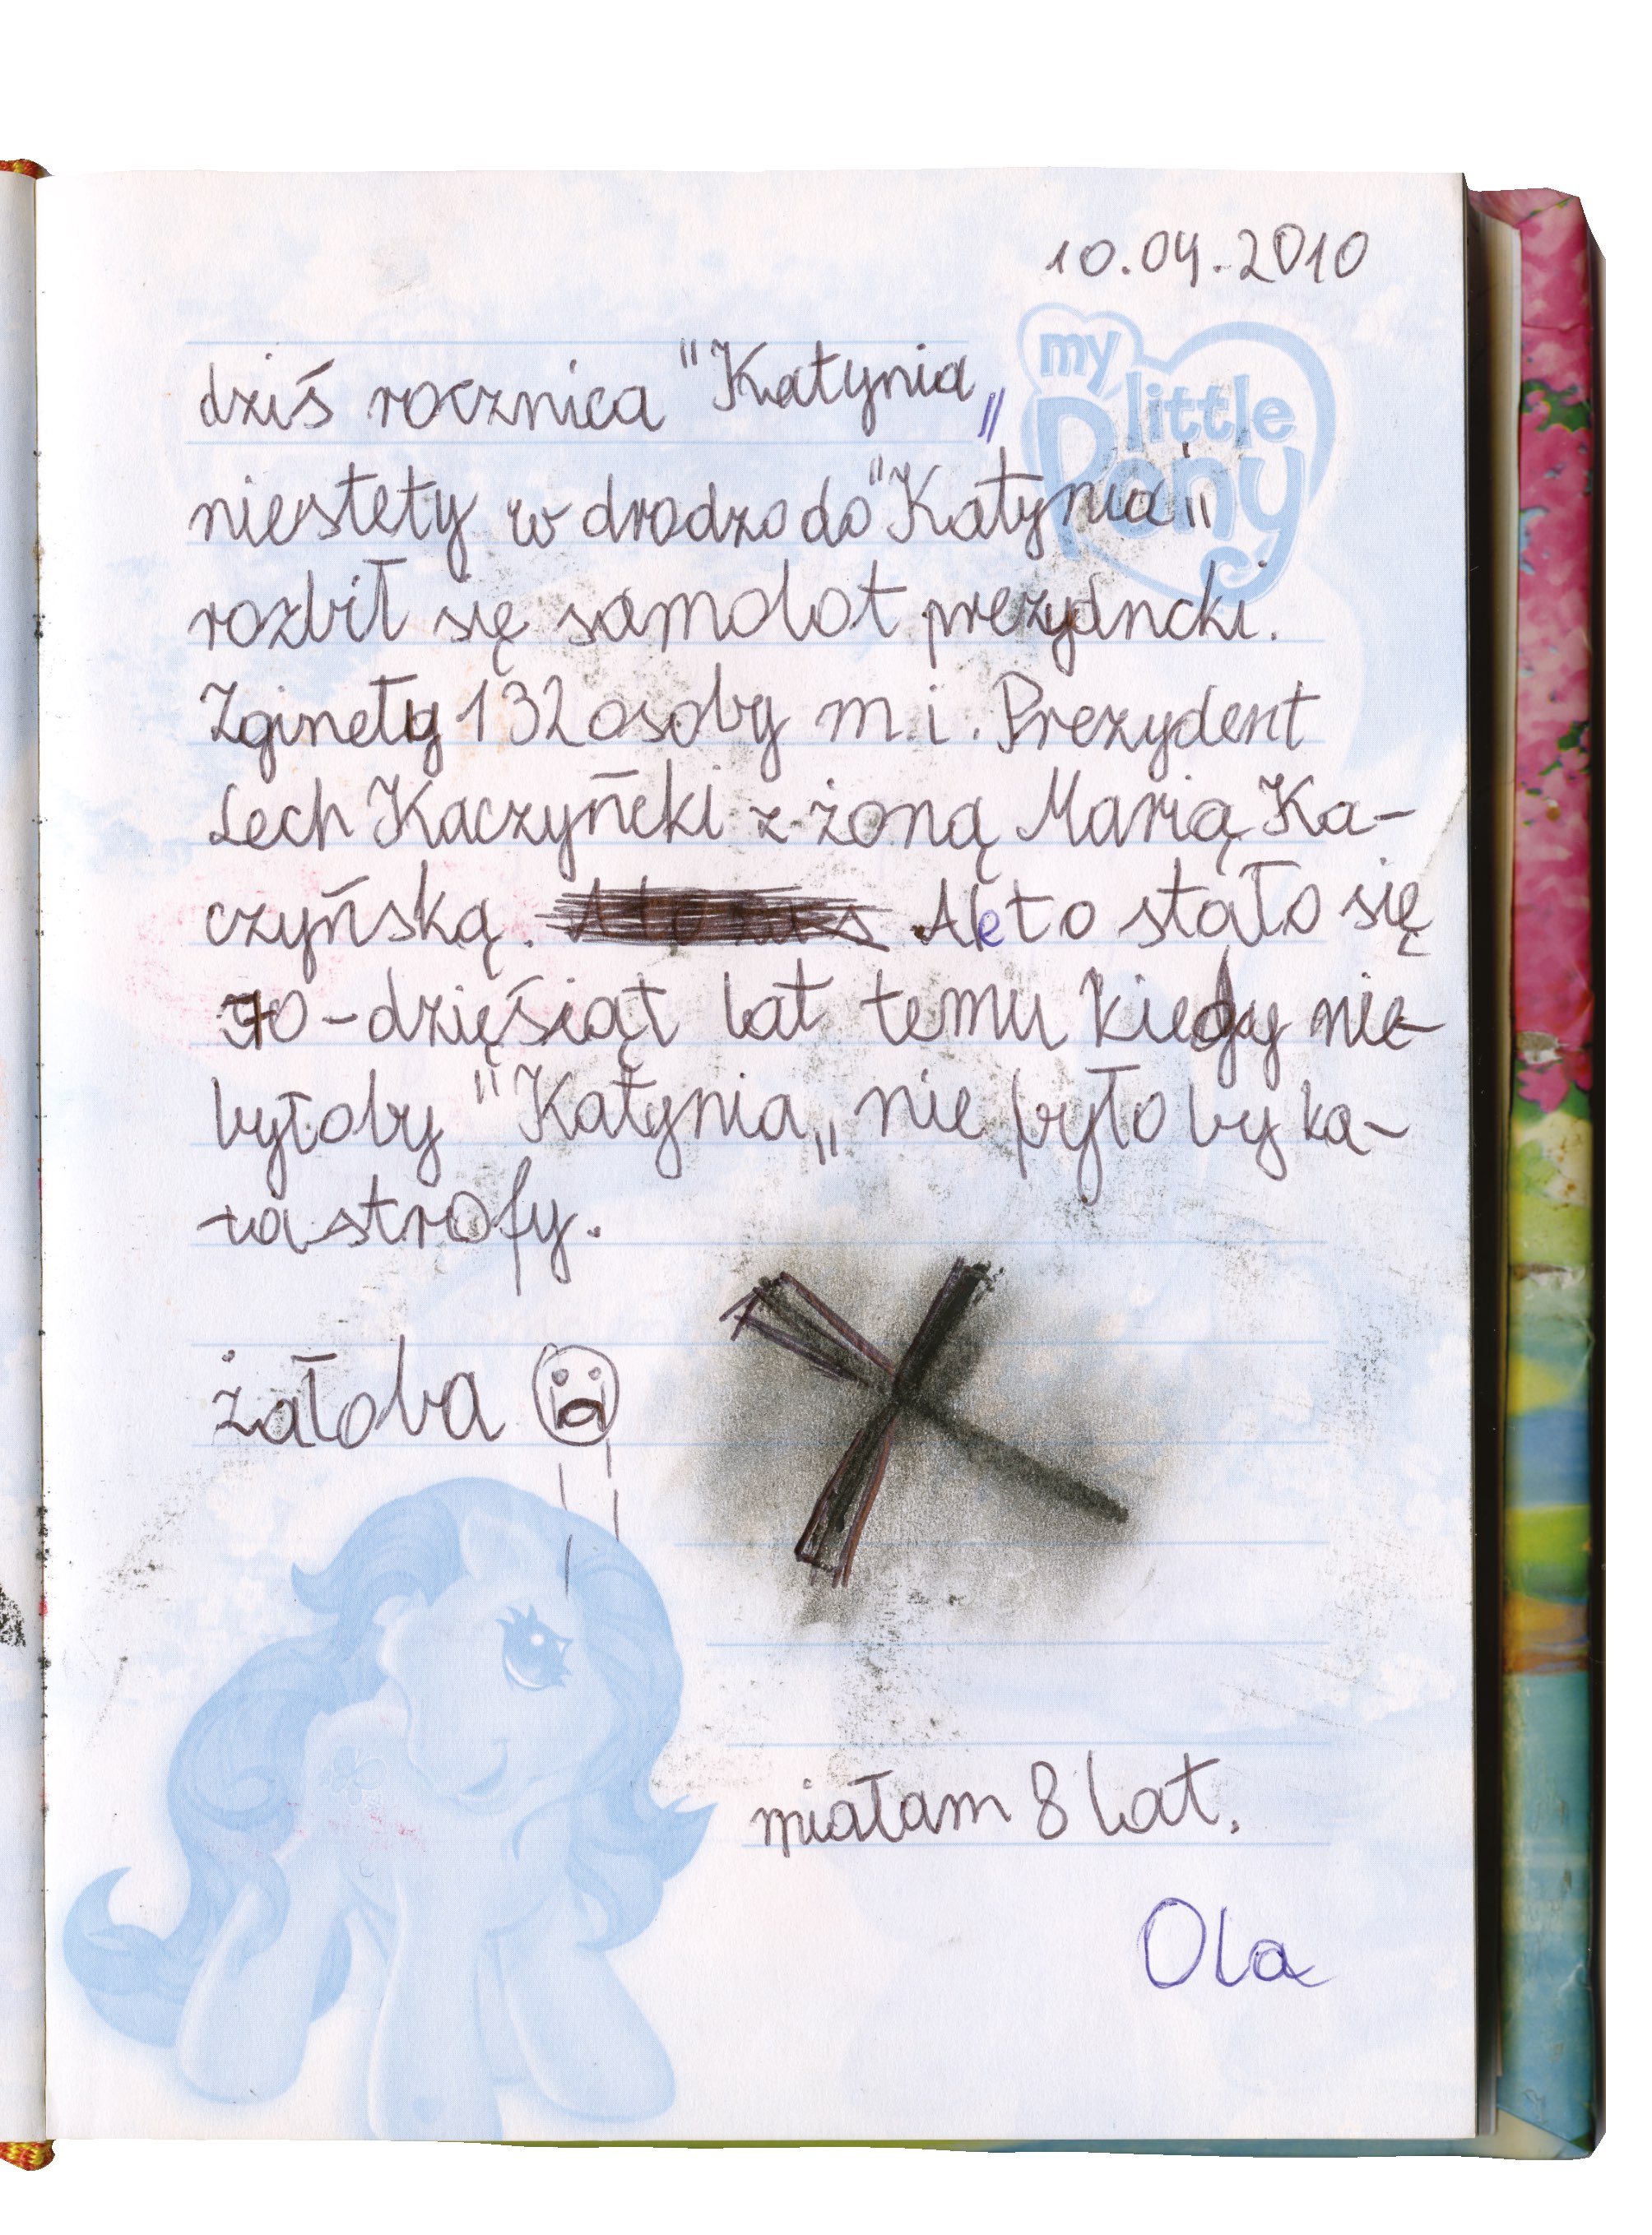 10.04.2010
my
little
Pony
dziś rocznica "Katynia„
niestety w drodzo do "Katynia"
rozbił się samolot prezydncki.
Zginęły 132 osoby m.i. Prezydent
Lech Kaczyńcki z żoną Marią Ka-
czyńską. Ale to stało się
70-dzięsiąt lat temu kiedy nie-
byłoby "Katynia„ nie byłoby ka-
tastrofy.
żałoba
miałam 8 lat.
Ola